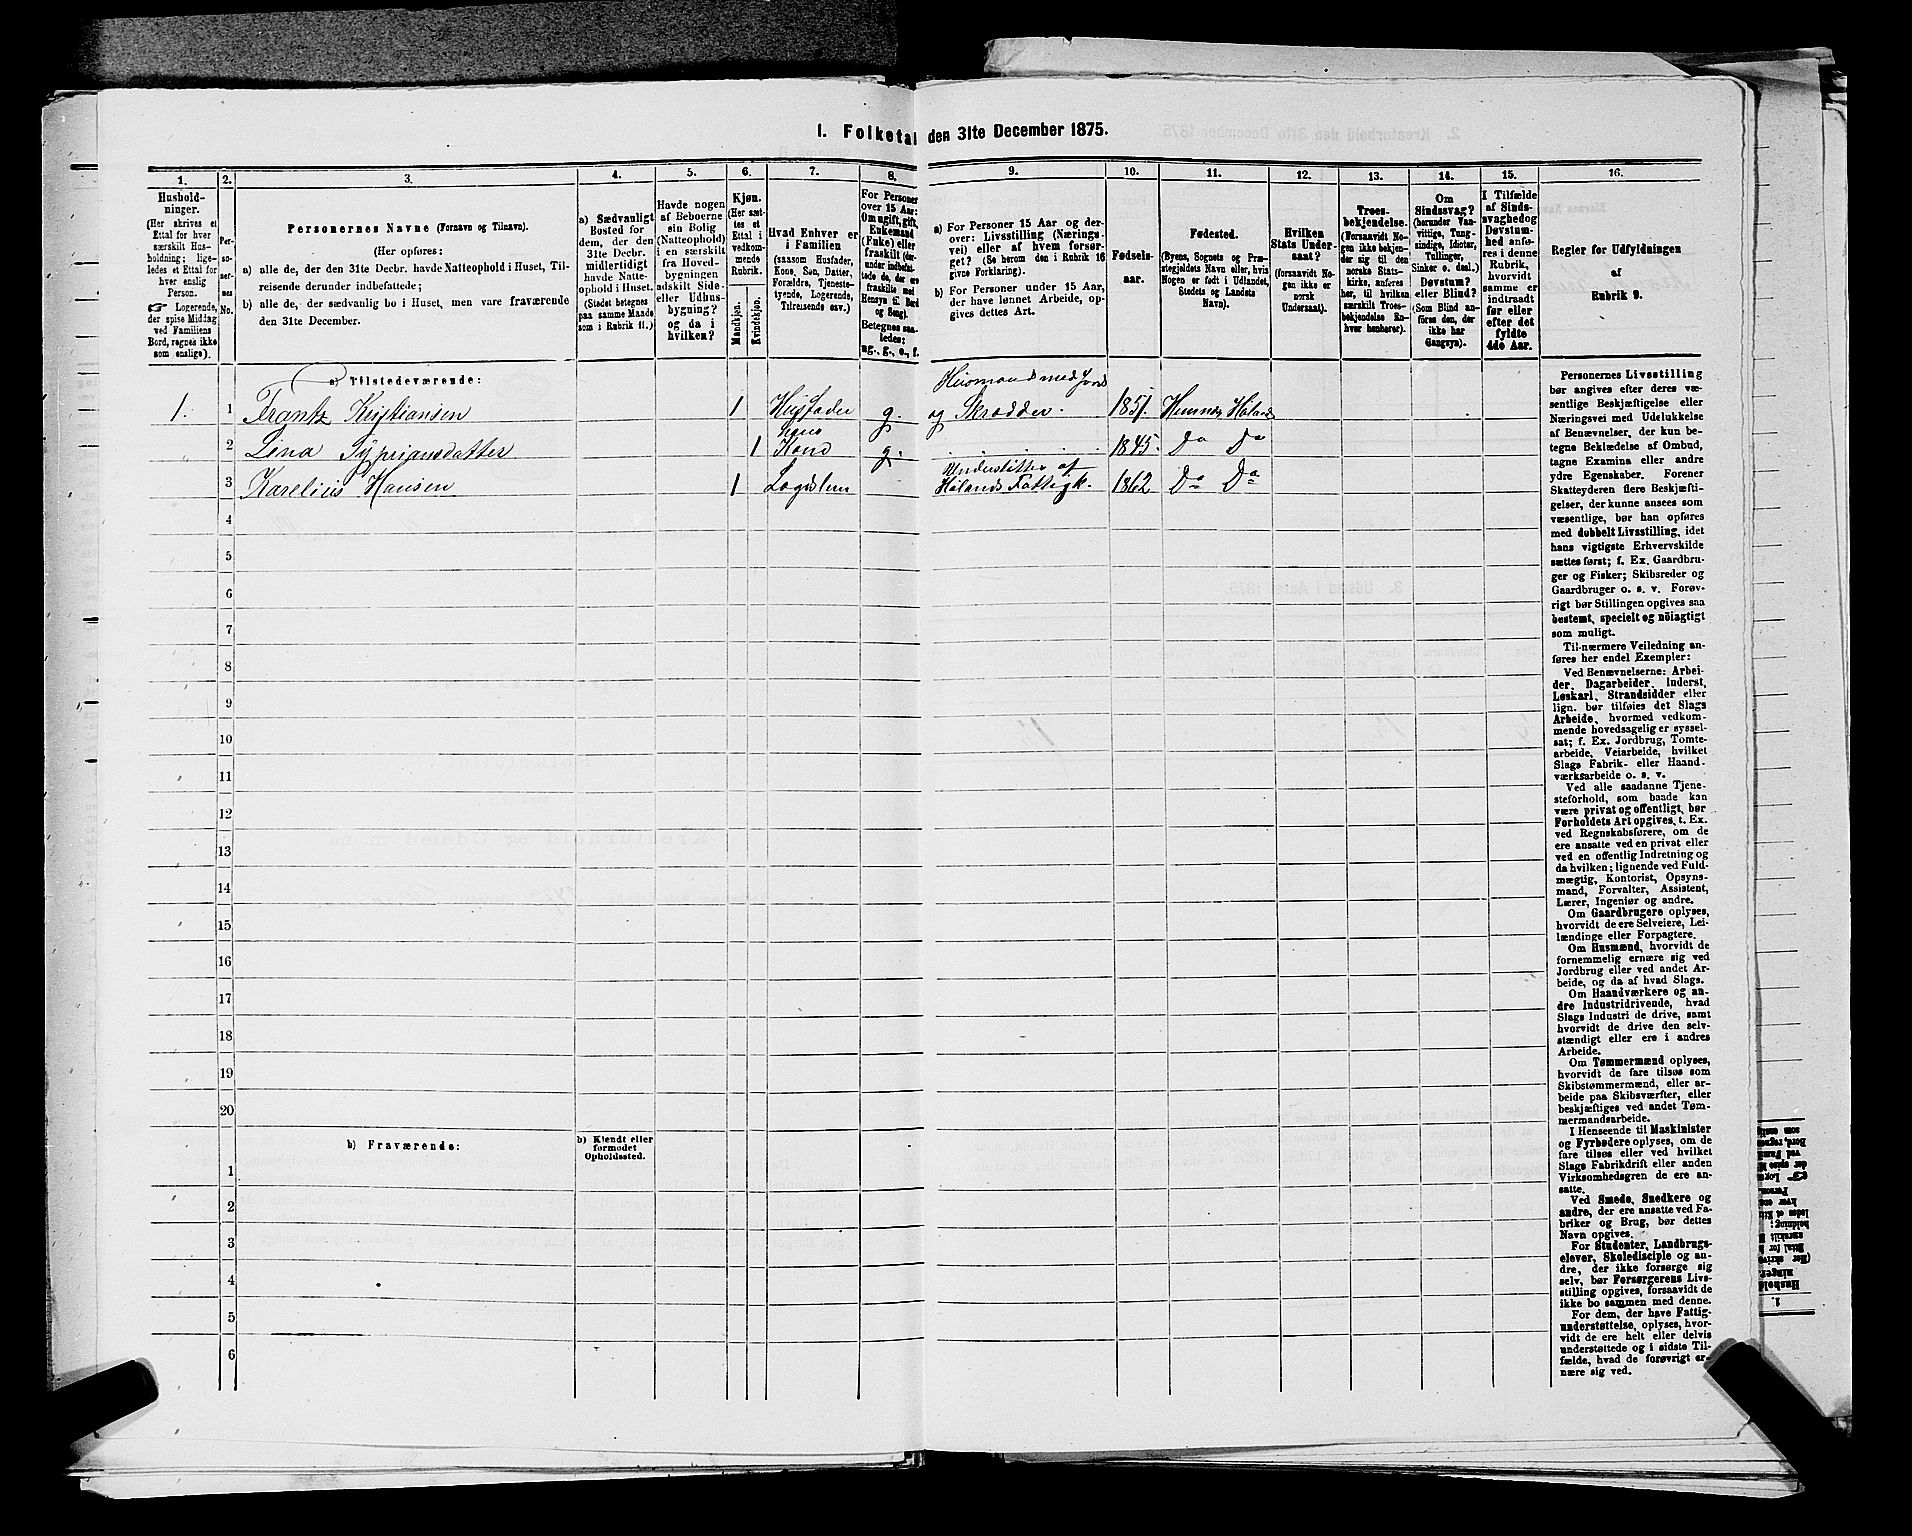 1. Folketal den 31te December 1875.
1. 2. 3. 4. 5. 6. 7. 8. 9. 10. 11. 12. 13. 14. 15. 16.
Hushold-
ninger.
(Her skrives et
Ettal for hver
særskilt Hus-
holdning; lige-
ledes et Ettal for
hver enslig
Person.
☞ Logerende,
der spise Middag
ved Familiens
Bord, regnes ikke
som enslige).
Per-
so-
ner-
nes
No.
Personernes Navne (Fornavn og Tilnavn).
(Her opføres:
a) alle de, der den 31te Decbr. havde Natteophold i Huset, Til-
reisende derunder indbefattede;
b) alle de, der sædvanlig bo i Huset, men vare fraværende
den 31te December.
a) Sædvanligt
Bosted for
dem, der den
31te Decbr.
midlertidigt
havde Natte-
ophold i Huset.
(Stedet betegnes
paa samme Maade
som i Rubrik 11.)
Havde nogen
af Beboerne
sin Bolig
(Natteophold)
i en særskilt
fra Hoved-
bygningen
adskilt Side-
eller Udhus-
bygning?
og da i
hvilken?
Kjøn.
(Her sæt-
tes et
Ettal i
vedkom-
mende
Rubrik.
Mandkjøn.
Kvindekjøn.
Hvad Enhver er
i Familien
(saasom Husfader,
Kone, Søn, Datter,
Forældre, Tjeneste-
tyende, Logerende,
Tilreisende osv.)
For Personer
over 15 Aar:
Om ugift, gift,
Enkemand
(Enke) eller
fraskilt (der-
under indbefat-
tede de, der ere
fraskilte med
Hensyn til Bord
og Seng).
Betegnes saa-
ledes:
ug., g., e., f.
a) For Personer 15 Aar og der-
over: Livsstilling (Nærings-
vei) eller af hvem forsør-
get? (Se herom den i Rubrik 16
givne Forklaring).
b) For Personer under 15 Aar,
der have lønnet Arbeide, op-
gives dettes Art.
Fødsels-
aar.
Fødested.
(Byens, Sognets og Præ-
stegjeldets Navn eller, hvis
Nogen er født i Udlandet,
Stedets og Landets
Navn).
Hvilken
Stats Under-
saat?
(forsaavidt No-
gen ikke er
norsk
Undersaat).
Troes-
bekjendelse.
(Forsaavidt No-
gen ikke bekjen-
der sig til den
norske Stats-
kirke, anføres
her, til hvilken
særskilt Troes-
bekjendelse En-
hver henhører).
Om
Sindssvag?
(herunder Van-
vittige, Tung-
sindige, Idioter,
Tullinger,
Sinker o. desl.)
Døvstum?
eller Blind?
(Som Blind an-
føres den, der
ikke har
Gangsyn).
I Tilfælde
af Sinds-
svaghed og
Døvstum-
hed anfø-
res i denne
Rubrik,
hvorvidt
samme er
indtraadt
før eller
efter det
fyldte
4de Aar.
Regler for Udfyldningen
af
Rubrik 9.
a) Tilstedeværende:
1. 1 Frantz Kristiansen 1 Husfader g. Husmand med Jord og Skrædder. 1851. Hemnæs Høland
2 Lina Sypriansdatter 1 hans Kone g. 1845. Do Do
3 Karelius Hansen 1 Logislem Understøttes af Hølands Fattigk. 1862 Do Do
4
5
6
7
8
9
10
11
12
13
14
15
16
17
18
19
20
b) Fraværende:
b) Kjendt eller
formodet
Opholdssted.
1
2
3
4
5
6
Personernes Livsstilling
bør angives efter deres væ-
sentlige Beskjæftigelse eller
Næringsvei med Udelukkelse
af Benævnelser, der kun be-
tegne Beklædelse af Ombud,
tagne Examina eller andre
ydre Egenskaber. Forener
Skatteyderen flere Beskjæfti-
gelser, der kunne ansees som
væsentlige, bør han opføres
med dobbelt Livsstilling, idet
hans vigtigste Erhvervskilde
sættes først; f. Ex. Gaardbru-
ger og Fisker; Skibsreder og
Gaardbruger o. s. v. Forøv-
rigt bør Stillingen opgives saa
bestemt, specielt og nöiagtigt
som muligt.
Til nærmere Veiledning an-
føres her endel Exempler:
Ved Benævnelserne: Arbei-
der, Dagarbeider, Inderst,
Løskarl, Strandsidder eller
lign. bør tilføies det Slags
Arbeide, hvormed vedkom-
mende hovedsagelig er syssel-
sat; f. Ex. Jordbrug, Tomte-
arbeide, Veiarbeide, hvilket
Slags Fabrik- eller Haand-
værksarbeide o. s. v.
Ved alle saadanne Tjene-
steforhold, som baade kan
være privat og offentligt, bør
Forholdets Art opgives, t. Ex.
ved Regnskabsførere, om de
ere ansatte ved en privat eller
ved en offentlig Indretning og
da hvilken; lignende ved Fuld-
mægtig, Kontorist, Opsyns-
mand, Forvalter, Assistent,
Lærer, Ingeniør og andre.
Om Gaardbrugere oplyses,
hvorvidt de ere Selveiere, Lei-
lændinge eller Forpagtere.
Om Husmænd, hvorvidt de
fornemmelig ernære sig ved
Jordbrug eller ved andet Ar-
beide, og da af hvad Slags.
Om Haandværkere og an-
dre Industridrivende, hvad
Slags Industri de drive, samt
hvorvidt de drive den selv-
stændigt eller ere i andres
Arbeide.
Om Tømmermænd oplyses,
hvorvidt de fare tilsøs som
Skibstømmermænd, eller ar-
beide paa Skibsværfter, eller
beskjæftiges ved andet Tøm-
mermandsarbeide.
I Henseende til Maskinister
og Fyrbødere oplyses, om de
fare tilsøs eller ved hvilket
Slags Fabrikdrift eller anden
Virksomhedsgren de ere an-
satte.
Ved Smede, Snedkere og
andre, der ere ansatte ved Fa-
briker og Brug, bør dettes
Navn opgives.
For Studenter, Landbrugs-
elever, Skoledisciple og an-
dre, der ikke forsørge sig
selv, bør Forsørgerens Livs-
stilling opgives, forsaavidt de
ikke bo sammen med denne.
For dem, der have Fattig-
understøttelse, oplyses, hvor-
vidt de ere helt eller delvis
understøttede og i sidste Til-
fælde, hvad de forøvrigt er-
nære sig ved.